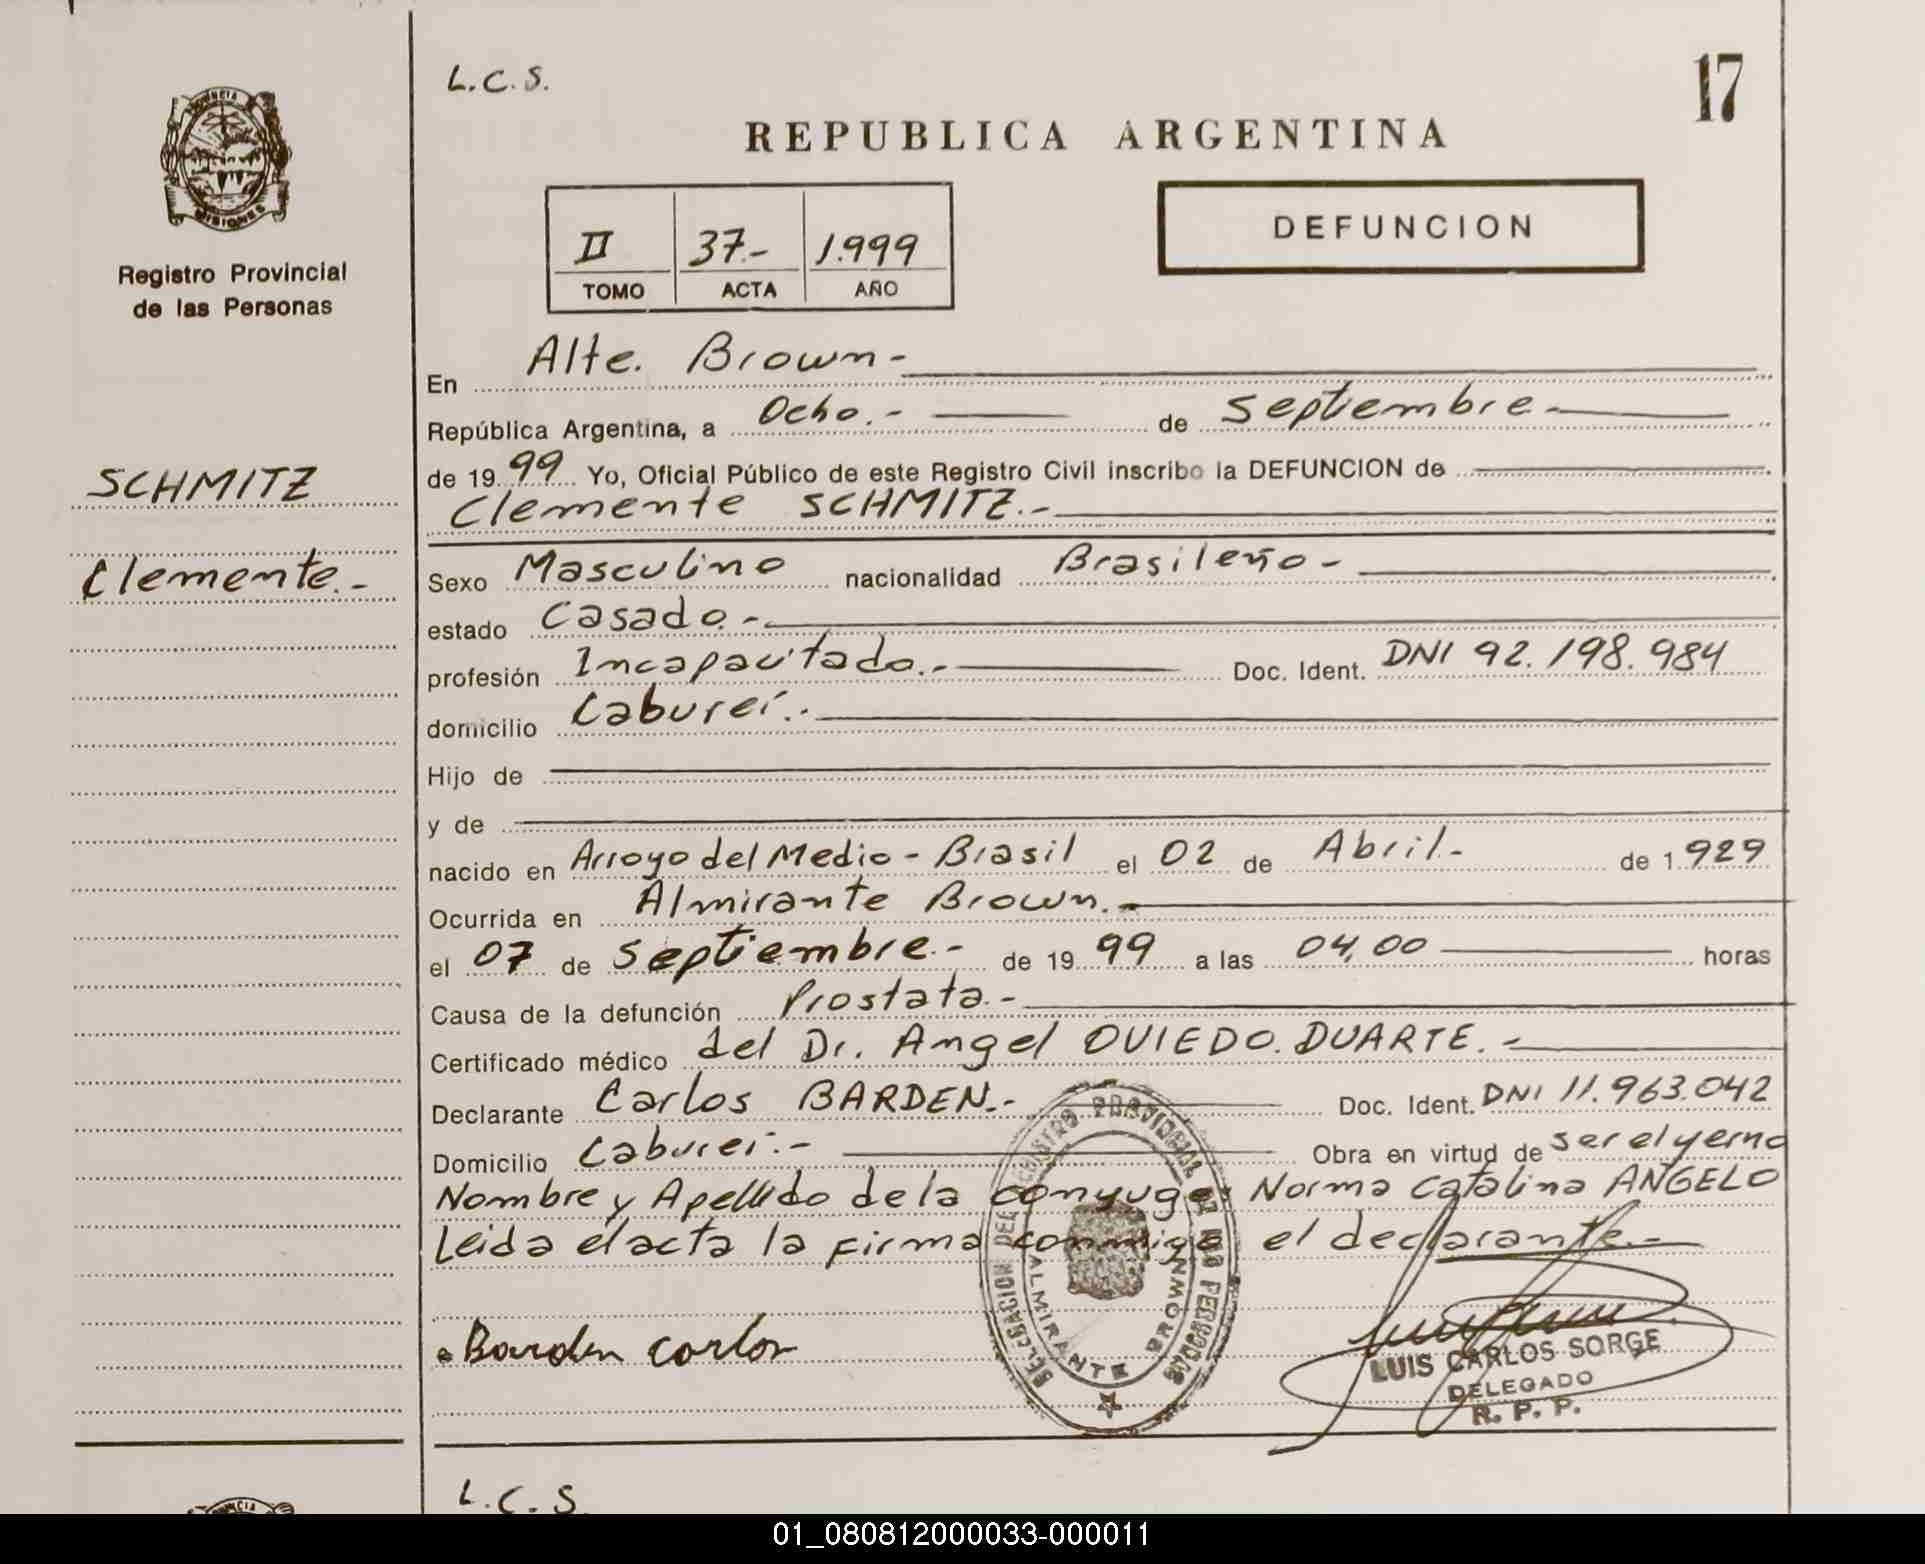 L.C.S.
17
REPUBLICA ARGENTINA
PROVINCIA
MISIONES
Registro Provincial
de las Personas
II 37.- 1.999
TOMO ACTA AÑO
DEFUNCION
SCHMITZ
Clemente.-
En Alte. Brown-
República Argentina, a Ocho.- de Septiembre-
de 1999 Yo, Oficial Público de este Registro Civil inscribo la DEFUNCION de
Clemente SCHMITZ.-
Sexo Masculino nacionalidad Brasileño-
estado Casado.-
profesión Incapacitado.- Doc. Ident. DNI 92.198.984
domicilio Cabureí.-
Hijo de
y de
nacido en Arroyo del Medio - Brasil el 02 de Abril.- de 1.929
Ocurrida en Almirante Brown.-
el 07 de Septiembre.- de 1999 a las 04,00 horas
Causa de la defunción Prostata.-
Certificado médico del Dr. Angel OVIEDO.DUARTE.-
Declarante Carlos BARDEN.- Doc. Ident. DNI 11.963.042
Domicilio Cabureí.- Obra en virtud de ser el yerno
Nombre y Apellido de la conyuge: Norma Catalina ANGELO
Leida el acta la firma conmigo el declarante.-
Barden Carlos
DELEGACION DEL REGISTRO PROVINCIAL DE LAS PERSONAS
ALMIRANTE BROWN
LUIS CARLOS SORGE
DELEGADO
R. P. P.
L.C.S.
01_080812000033-000011